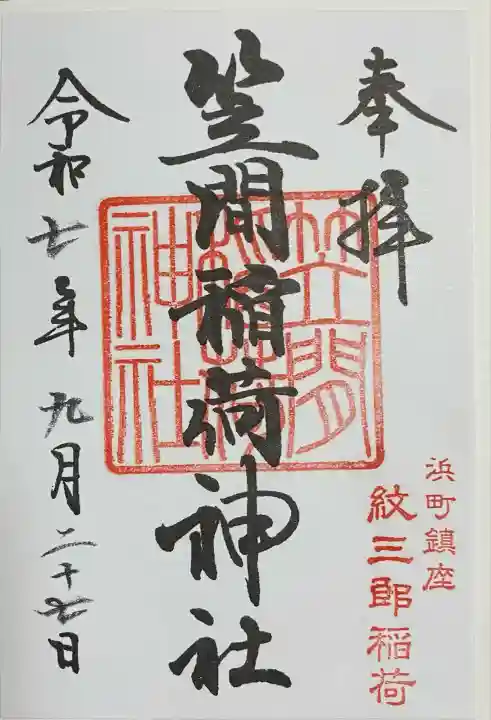 奉拝
浜町鎮座
紋三郎稲荷
笠間稲荷神社
笠間稲荷神社
令和七年九月二十七日